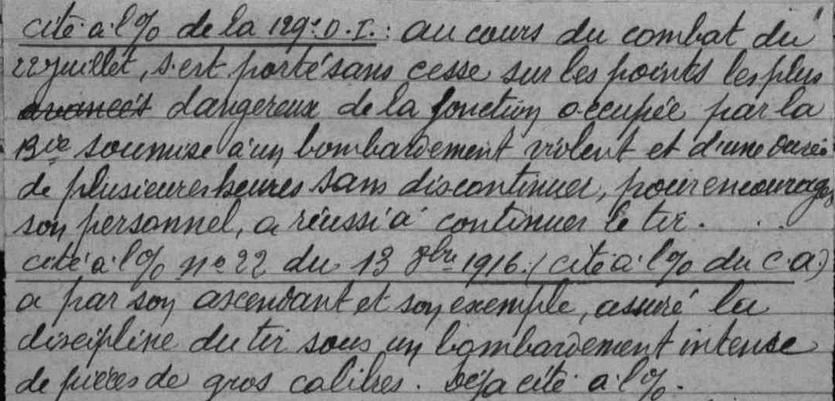 cité à l'o/o de la 129e D.I. : au cours du combat du
22 juillet, s'est porté sans cesse sur les points les plus
avancés dangereux de la fonction occupée par la
Bie soumise à un bombardement violent et d'une durée
de plusieurs heures sans discontinuer, pour encourager
son personnel, a réussi à continuer le tir.
cité à l'o/o no 22 du 13 8bre 1916. (cité à l'o/o du C.A)
a par son ascendant et son exemple, assuré la
discipline du tir sous un bombardement intense
de pièces de gros calibres. Déjà cité à l'o/o.